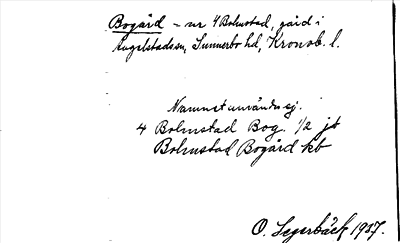 Bogård - nr 4 Bolmstad, gård i
Angelstads sn, Sunnerbo hd, Kronob. l.
Namnet användes ej.
4 Bolmstad Bog. 1/2 jb
Bolmstad Bogård kb
O. Segerbäck 1937.